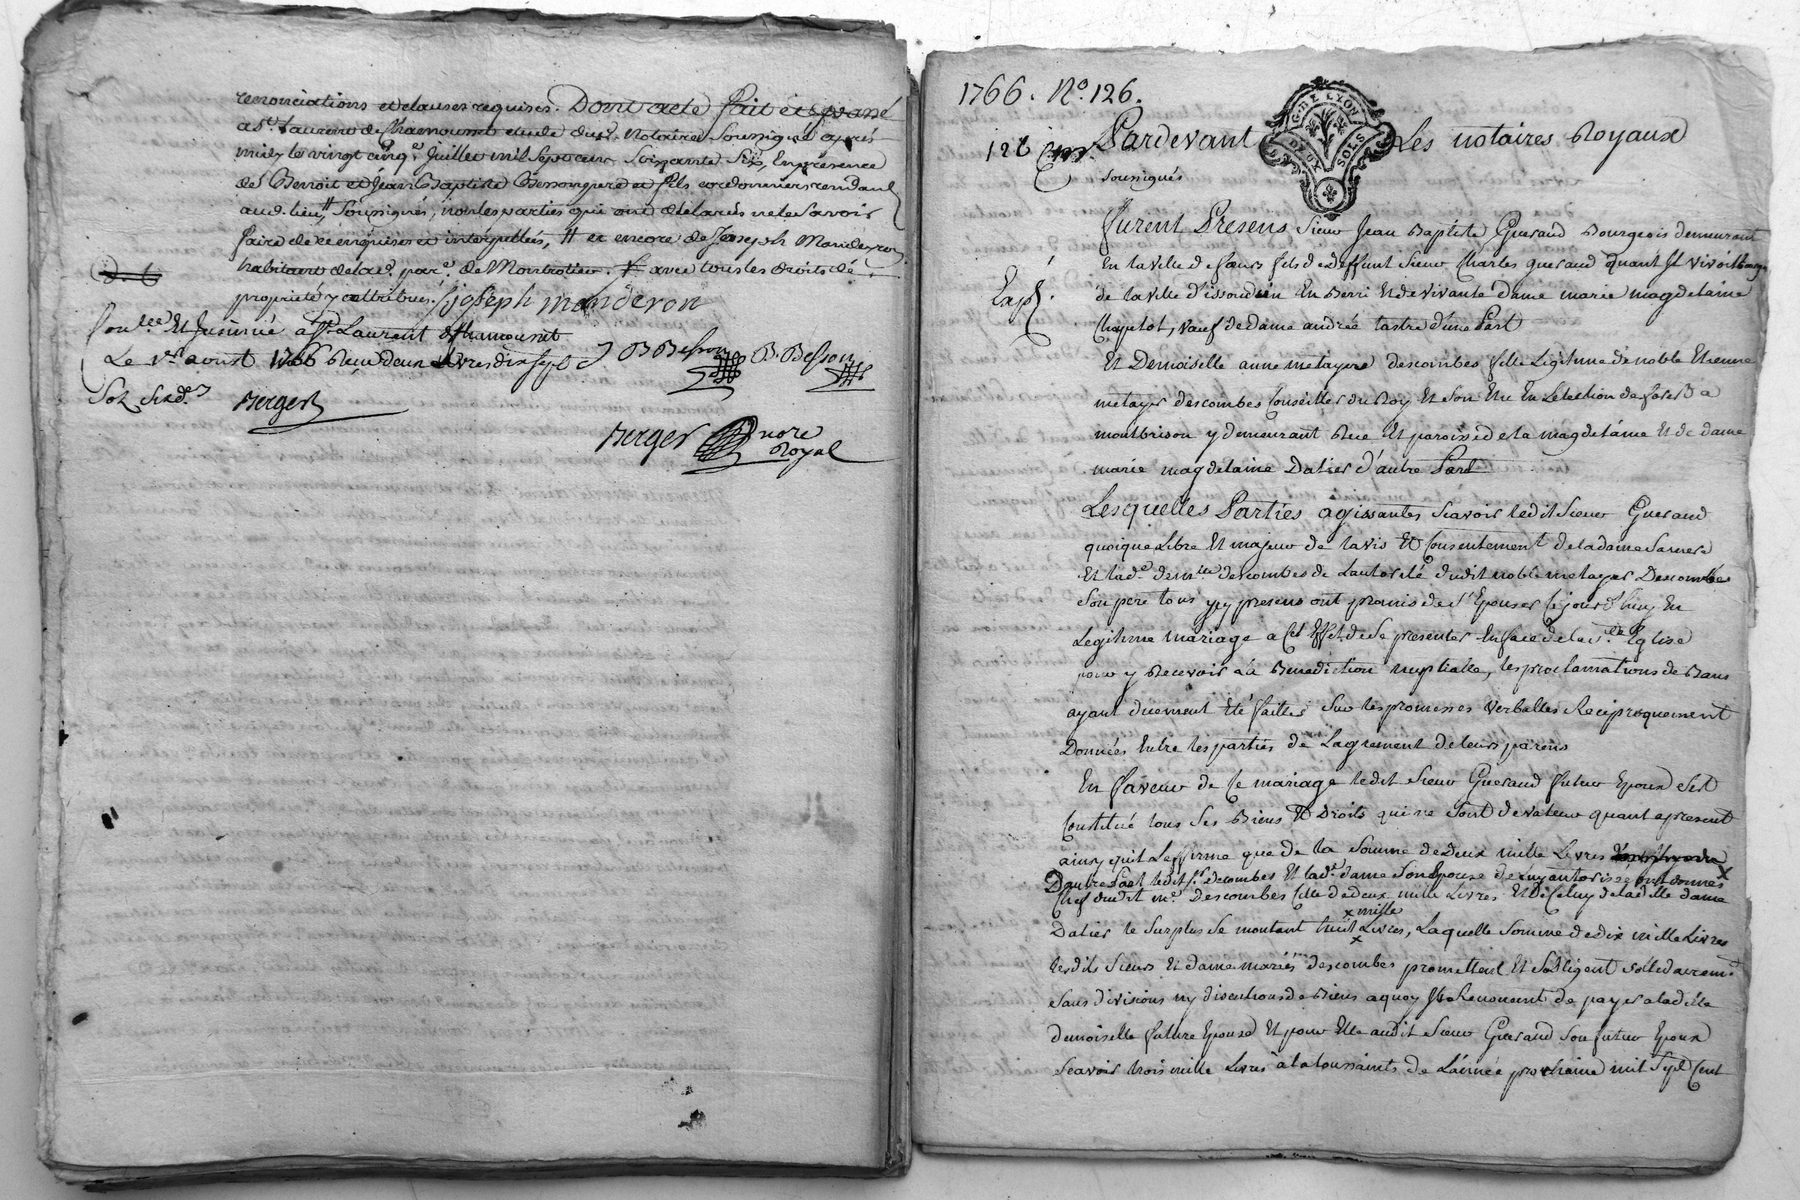 renonciations et clauses requises. Dont acte fait et passé
a St. Laurent de Chamousset etude dud. Notaire Soussigné après
midy le vingt cinq.e Juillet mil Sept cent Soixante Six, En presence
de Benoit et Jean Baptiste Besson pere et fils cordonniers
aud. lieu Soussignés, non les parties qui ont declarés ne le Savoir
faire de ce enquises et interpellées, # et encore de Joseph Manderon
habitant de lad. par. de Montrotier. # avec tous les droits de
propriété y attribués. joseph manderon
Con.lée Et Insinué a St. Laurent de Chamousset
Le 1er aoust 1766 Reçu deux Livres dix sept
B Besson B. Besson
Sols Six d.ers Berger
Berger nore
Royal
1766. No. 126.
G. DE LYON
DEUX SOLS
126 Pardevant Les notaires Royaux
soussignés
furent Presens Sieur Jean Baptiste Gueraud Bourgeois demeurant
En la ville de feurs fils de deffunt Sieur Charles Gueraud quant Il vivoit
de la ville d'issoudun En Berri Et de vivante dame marie magdelaine
Chapelot, veuf de dame andrée tastre d'une Part
Et Demoiselle anne metayer descombes fille Legitime de noble Etienne
metayer descombes Conseiller du Roy Et Son Elu En Lelection de forest a
montbrison y demeurant Rue Et paroisse de la magdelaine Et de dame
marie magdelaine Datier d'autre Part
Lesquelles Parties agissantes Scavoir ledit Sieur Gueraud
quoique Libre Et majeur de lavis Et Consentement de la dame Sa mere
Et lad.e dem.lle descombes de Lautorité dudit noble metayer Descombes
Son pere tous yçy presens ont promis de S'Epouser Cejourd'huy En
Legitime mariage a Cet Effet de Se presenter En face de la S.te Eglise
pour y Recevoir la Benediction nuptialle, les proclamations de Bans
ayant duement Eté faittes Sur les promesses verballes Reciproquement
Données Entre les parties de Lagrement de leurs parens
En faveur de Ce mariage ledit Sieur Gueraud futur Epoux Sest
Constitué tous Ses Biens Et Droits qui ne Sont de valeur quant apresent
ainsy quil Laffirme que de la Somme de Deux mille Livres
Dautre Part ledit Sr. descombes Et lad.e dame Son Epouse de luy autorisée ont donnés
Chef dudit Sr. Descombes Celle de deux mille Livres Et de Celuy de la ditte dame
Datier le Surplus Se montant huit mille Livres, Laquelle Somme de dix mille Livres
lesdits Sieurs Et dame mariés descombes promettent Et Sobligent Solidairem.t
Sans divisions ny discutions de Biens a quoy Ils Renoncent de payer a ladite
demoiselle future Epouse Et pour Elle audit Sieur Gueraud Son futur Epoux
Scavoir trois mille Livres à la toussaints de L'année prochaine mil Sept Cent